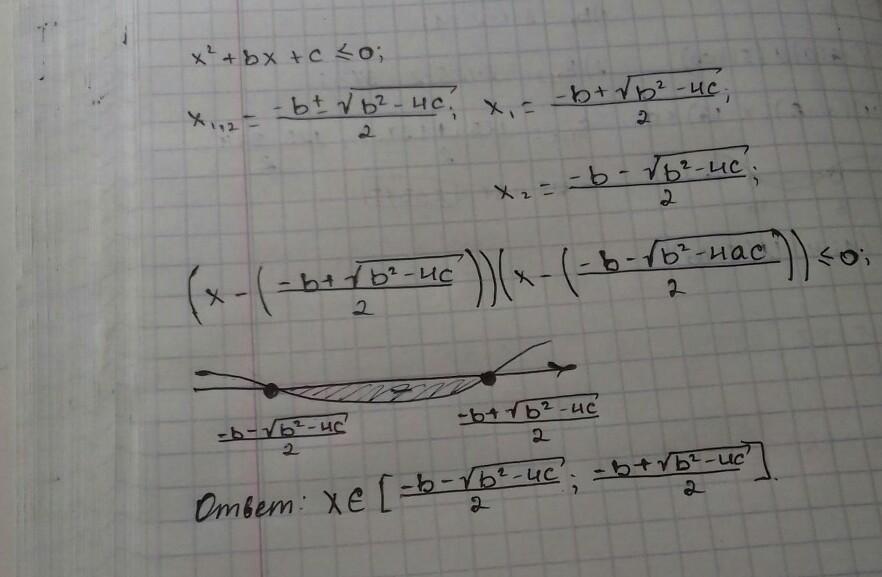 x² + bx + c ≤ 0;
x₁,₂ = (-b ± √(b² - 4c))/2; x₁ = (-b + √(b² - 4c))/2;
x₂ = (-b - √(b² - 4c))/2;
(x - ((-b + √(b² - 4c))/2))(x - ((-b - √(b² - 4ac))/2)) ≤ 0;
(-b - √(b² - 4c))/2 (-b + √(b² - 4c))/2
Ответ: x ∈ [(-b - √(b² - 4c))/2; (-b + √(b² - 4c))/2].